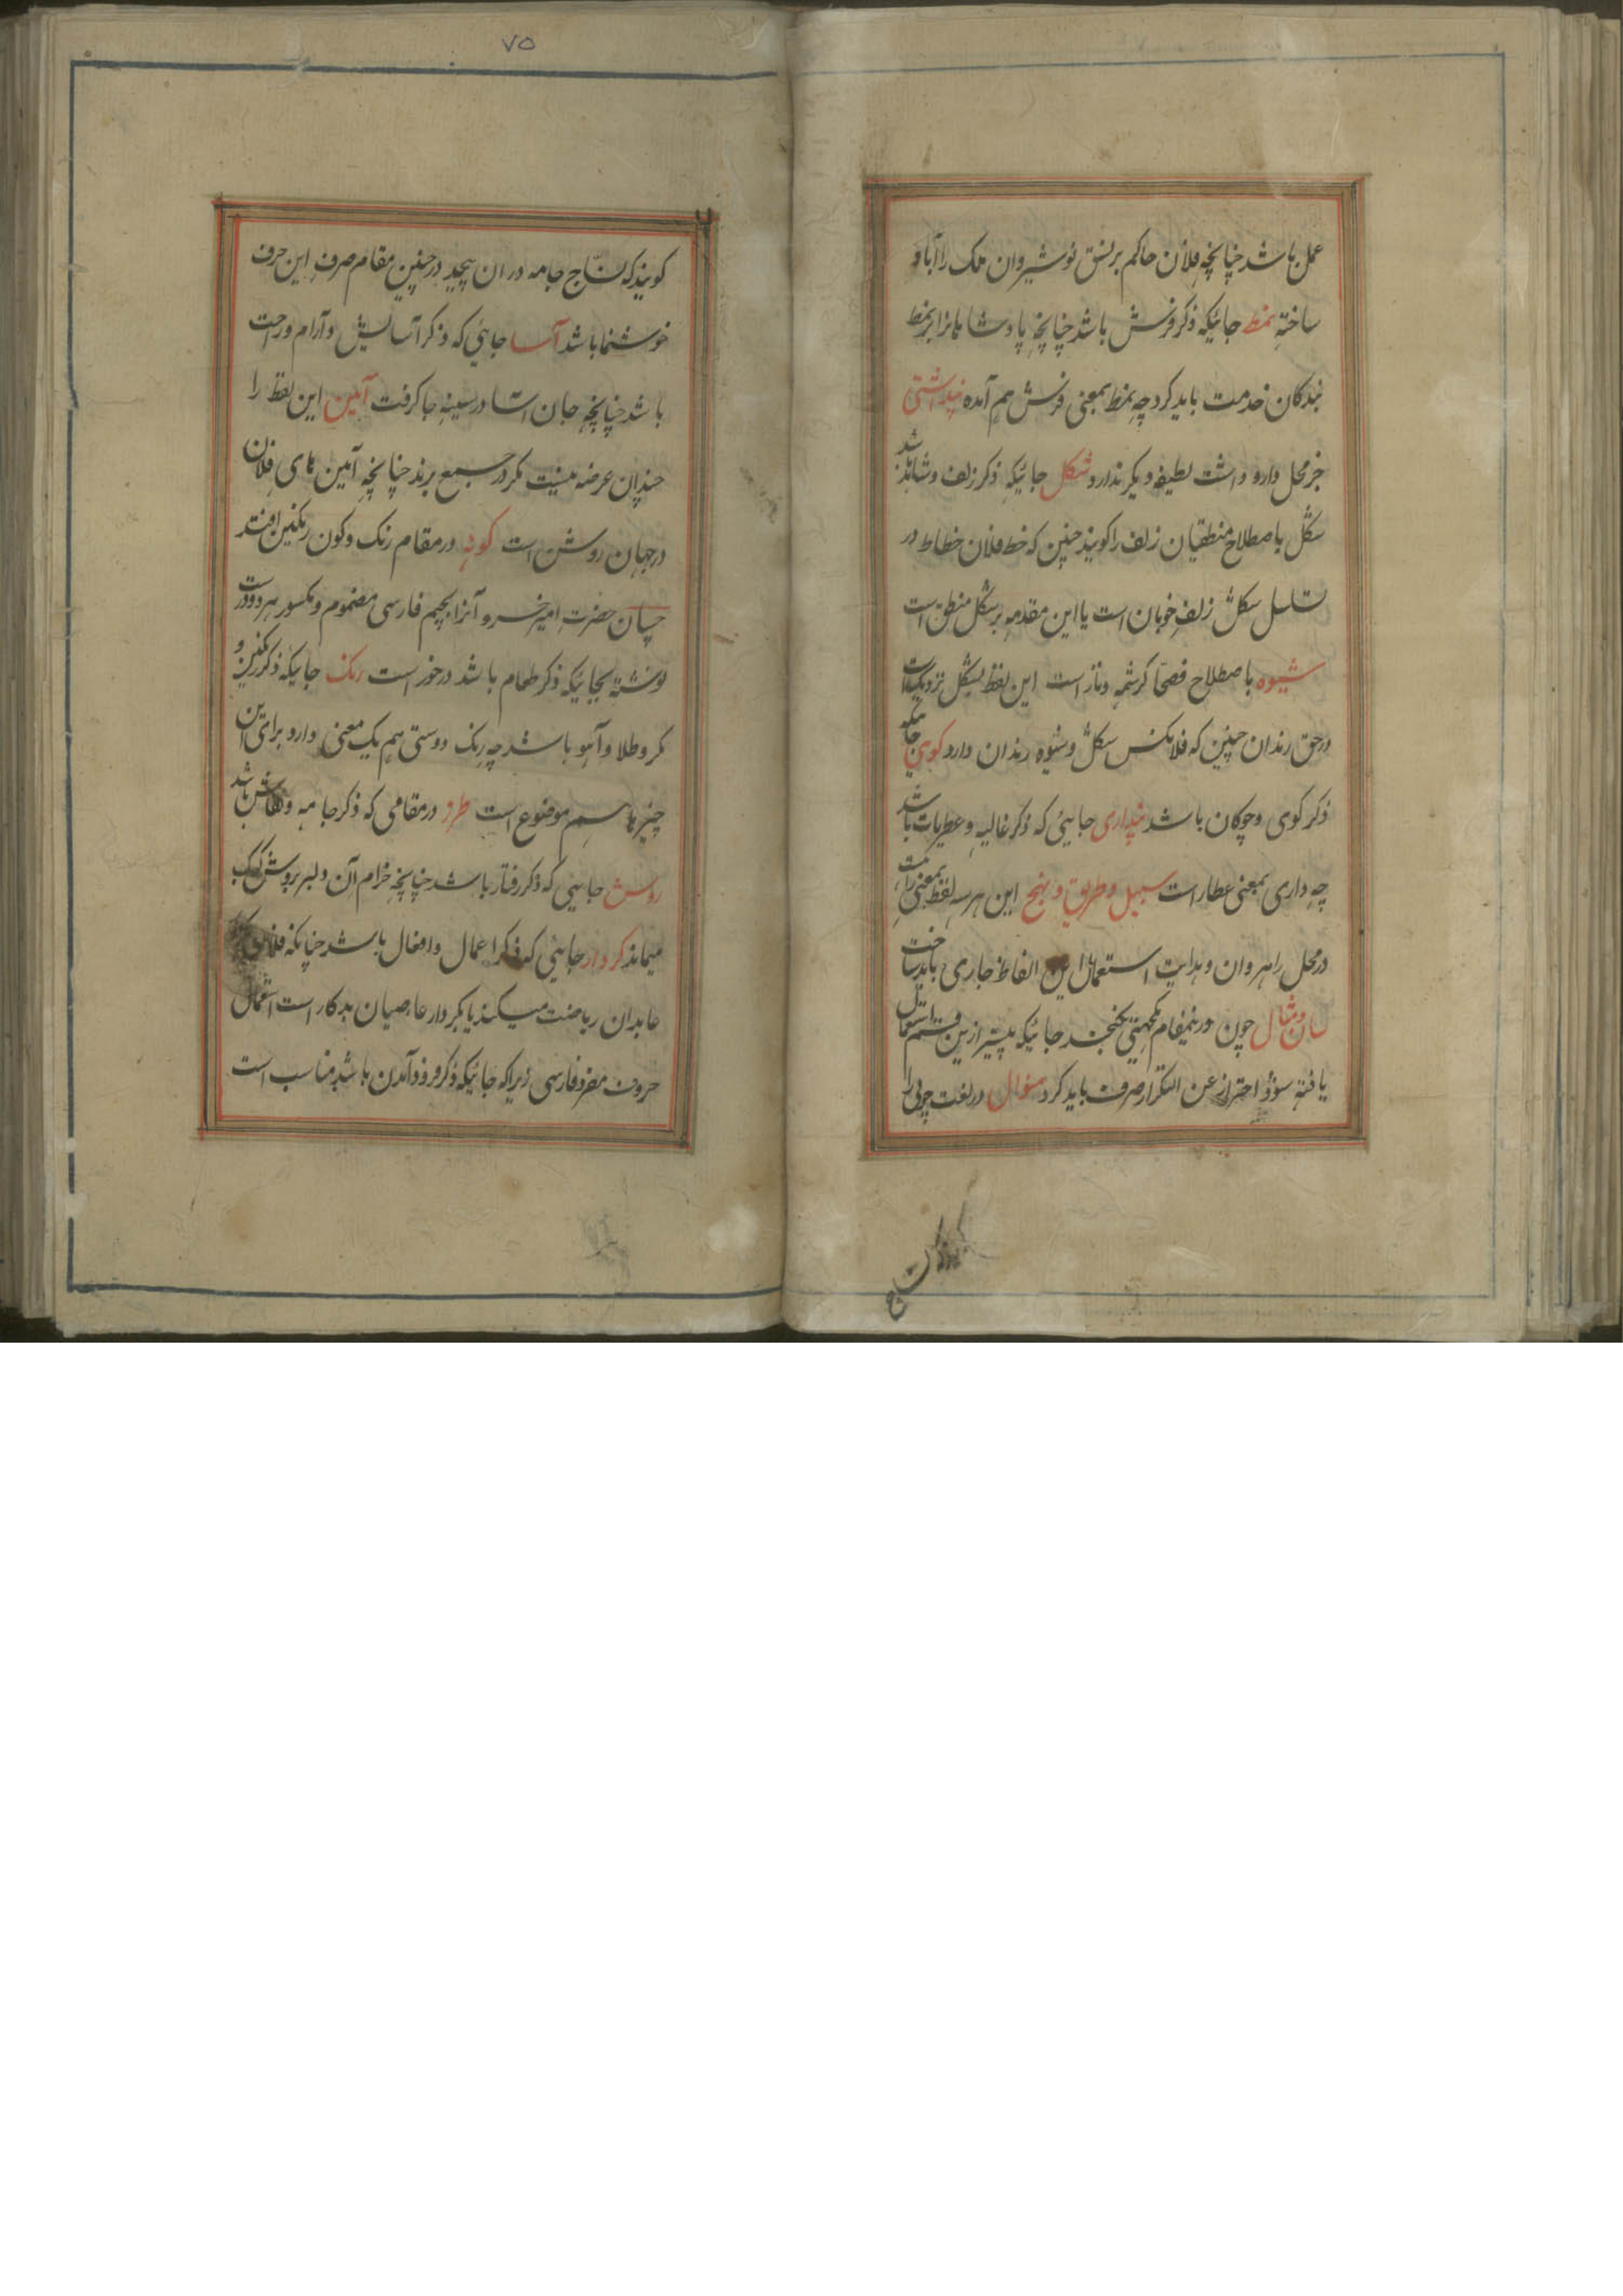 عمل باشد چنانچه فلان حاکم بر نسق نوشیروان ملک را آباد
ساخته نمط جائیکه ذکر فرش باشد چنانچه پادشاهانرا بر نمط
بندکان خدمت باید کرد چه نمط بمعنی فرش هم آمده پنداشتی
جز محل دارو داشت لطیفه دیکر ندارد شکل جائیکه ذکر زلف و شاهد باشد
شکل باصطلاح منطقیان زلف را کویند چنین که خط فلان خطاط در
تسلسل شکل زلف خوبان است یا این مقدمه بر شکل منطق است
شیوه باصطلاح فصحا کرشمه و ناز است این لفظ بشکل نزدیکست
در حق رندان چنین که فلانکس شکل و شیوه رندان دارد کوی جائیکه
ذکر کوی و چوکان باشد پنداری جایئی که ذکر غالیه و عطریات باشد
چه داری بمعنی عطار است سبیل و طریق و نهج این هرسه لفظ بمعنی راست
در محل راهروان و هدایت استعمال این الفاظ جاری باید ساخت
سان و مثال چون درینمقام نکهتی نکنجد جائیکه پیشتر ازین قسم استعمال
یافته سوؤ احتراز عن التکرار صرف باید کرد منوال در لغت چوبی را
کویند که نساج
۷۵
کویند که نسّاج جامه در ان پیچد در چنین مقام صرف این حرف
خوشنما باشد آسا جایئی که ذکر آسایش و آرام و راحت
باشد چنانچه جان آسا در سینه جا کرفت آیین این لفظ را
چندان عرضه نیست مکر در جمیع برند چنانچه آیین های فلان
در جهان روشن است کونه در مقام رنک و کون رنکین افتد
چسان حضرت امیر خسرو آنرا بجیم فارسی مضموم و مکسور هر دو درست
نوشته بجائیکه ذکر طعام باشد در خور است رنک جائیکه ذکر رنکین و
مکر و طلا و آهو باشد چه رنک دوستی هم یک معنی دارد برای این
چیزها اسم موضوع است طرز در مقامی که ذکر جامه و نقاش باشد
روش جایئی که ذکر رفتار باشد چنانچه خرام آن دلبر بروش کبک
میماند کردار جایئی که ذکر اعمال و افعال باشد چنانکه فلان
عابدان ریاضت میکند یا بکردار عاصیان بدکار است استعمال
حروف مفرد فارسی زیراکه جائیکه ذکر فرود آمدن باشد مناسب است